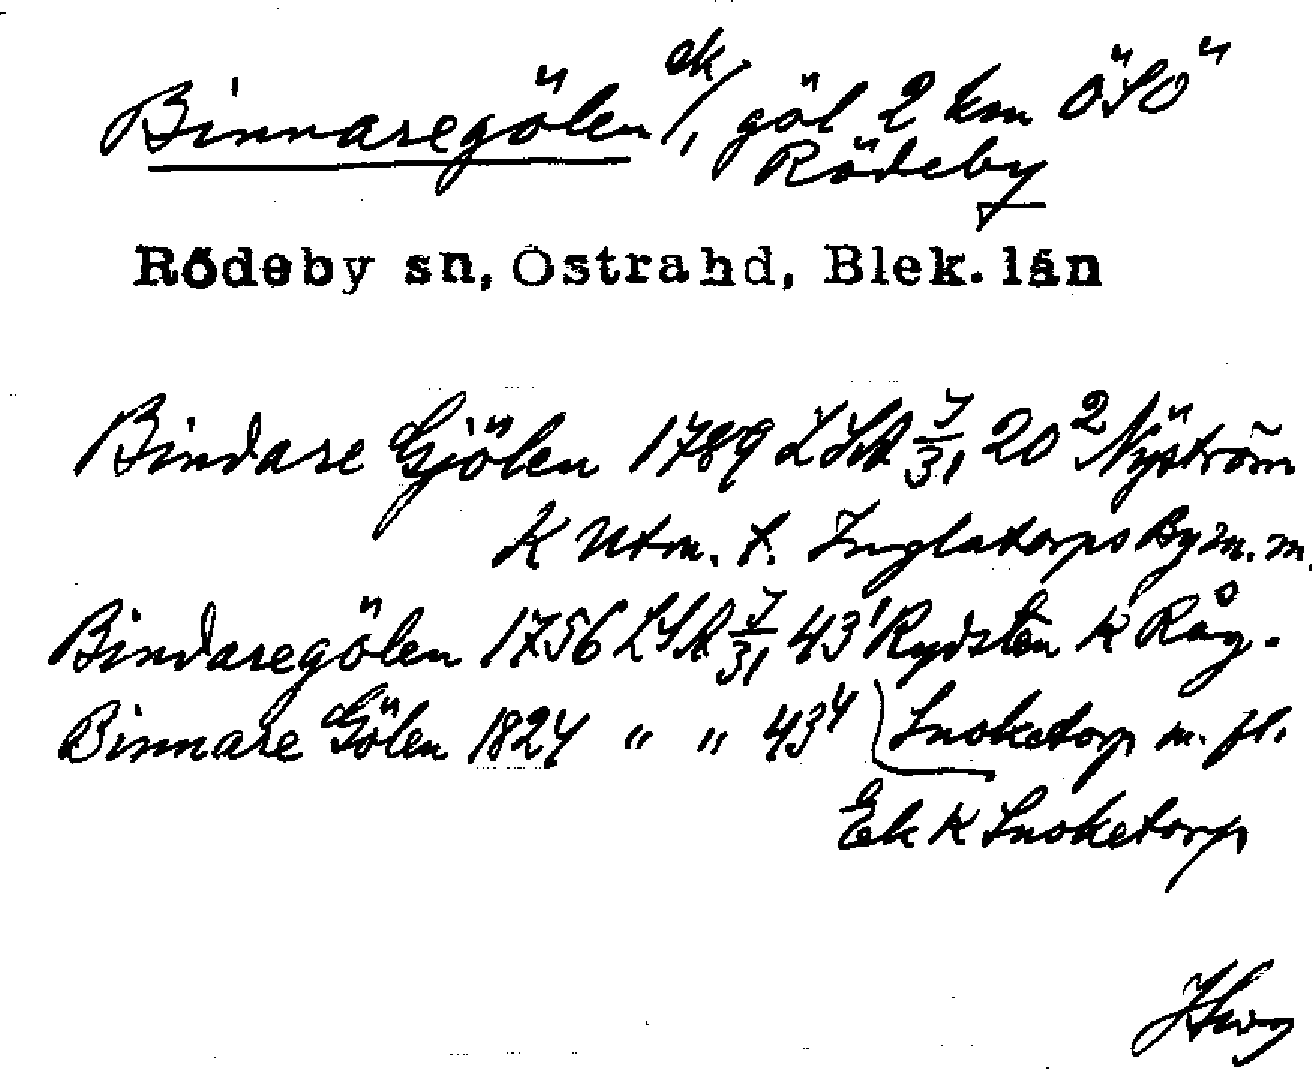 Binnaregölen ek/, göl 2 km ÖSÖ
Rödeby
Rödeby sn, Östra hd, Blek. län
Bindare Gjölen 1789 LSA J/31, 20² Nyström
K Utm. t. Inglatorps By m. m.
Bindaregölen 1756 LSA J/31, 43¹ Rydstén K Råg.
Binnare Gölen 1824 " " 43⁴ Snoketorp m. fl.
Ek K Snoketorp